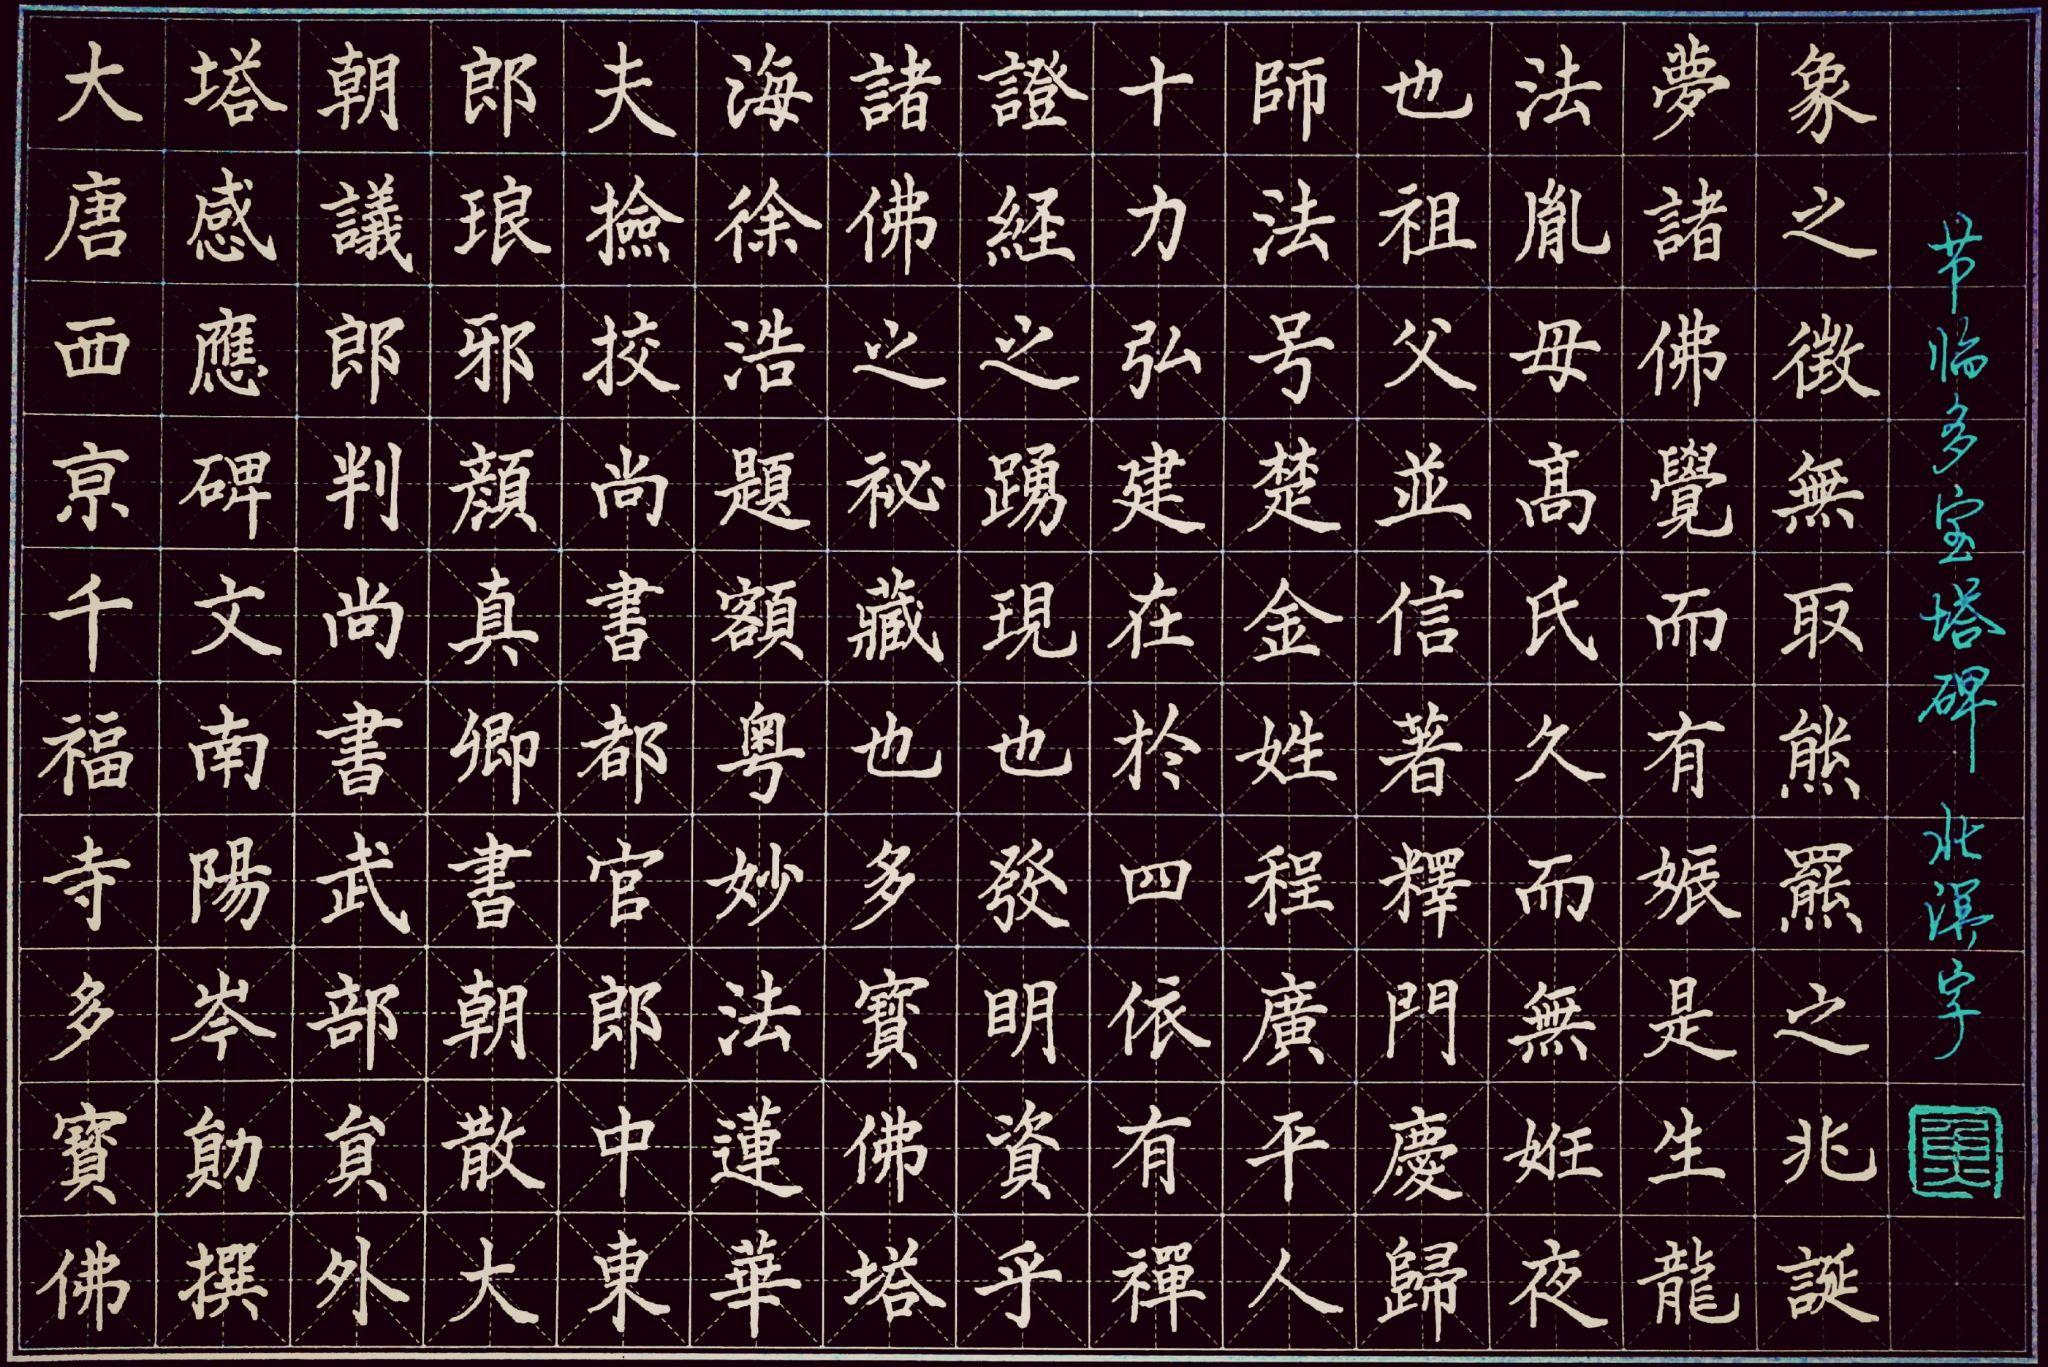 大唐西京千福寺多寶佛
塔感應碑文南陽岑勛撰
朝議郎判尚書武部員外
郎琅邪顏真卿書朝散大
夫撿挍尚書都官郎中東
海徐浩題額粵妙法蓮華
諸佛之祕藏也多寶佛塔
證經之踴現也發明資乎
十力弘建在於四依有禪
師法号楚金姓程廣平人
也祖父並信著釋門慶歸
法胤毋高氏久而無妊夜
夢諸佛覺而有娠是生龍
象之徵無取熊羆之兆誕
节临多宝塔碑 北溟字